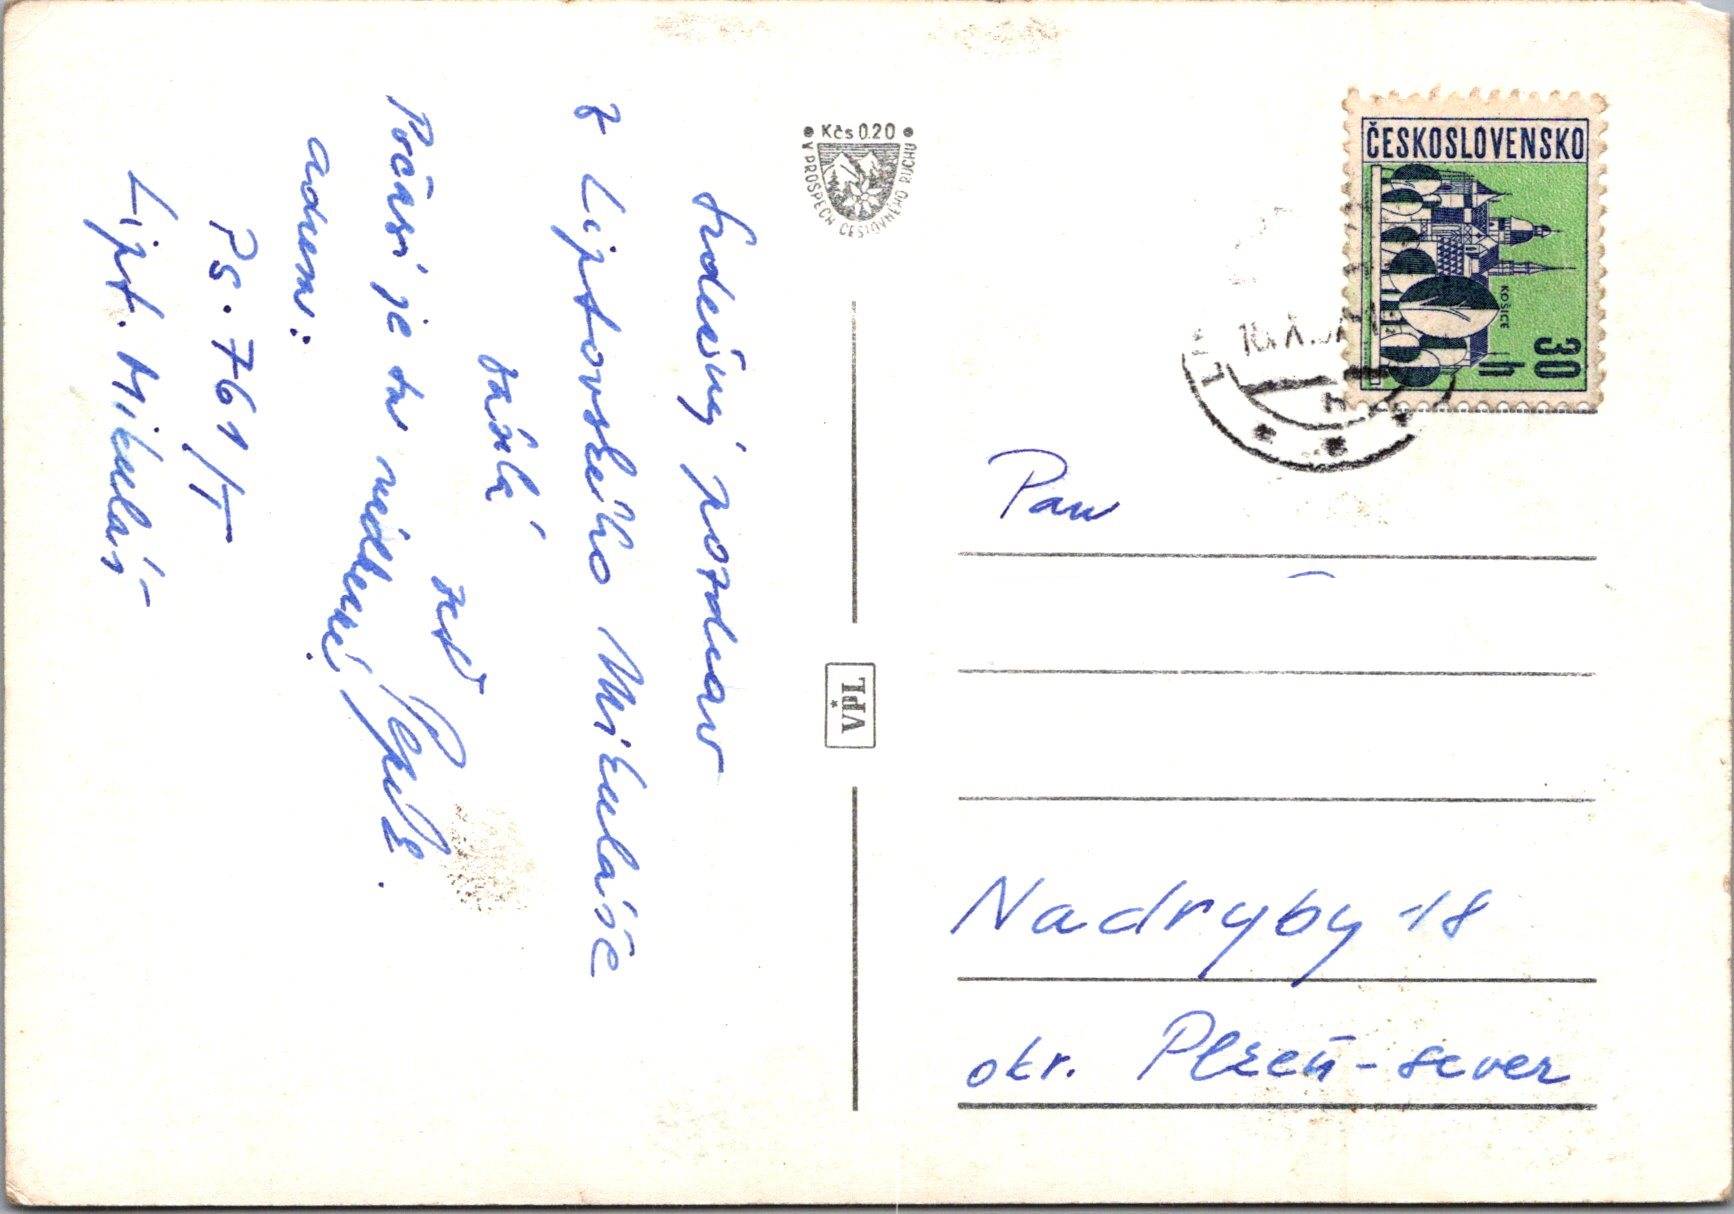 Srdečný pozdrav
z Liptovského Mikuláše
zasílá
Počasí je tu nádherné,
adresa:
Ps. 761/T
Lipt. Mikuláš
• Kčs 0.20 •
V PROSPĚCH CESTOVNÉHO RUCHU
VPL
ČESKOSLOVENSKO
KOŠICE
30 h
Pan
Nadryby 18
okr. Plzeň-sever